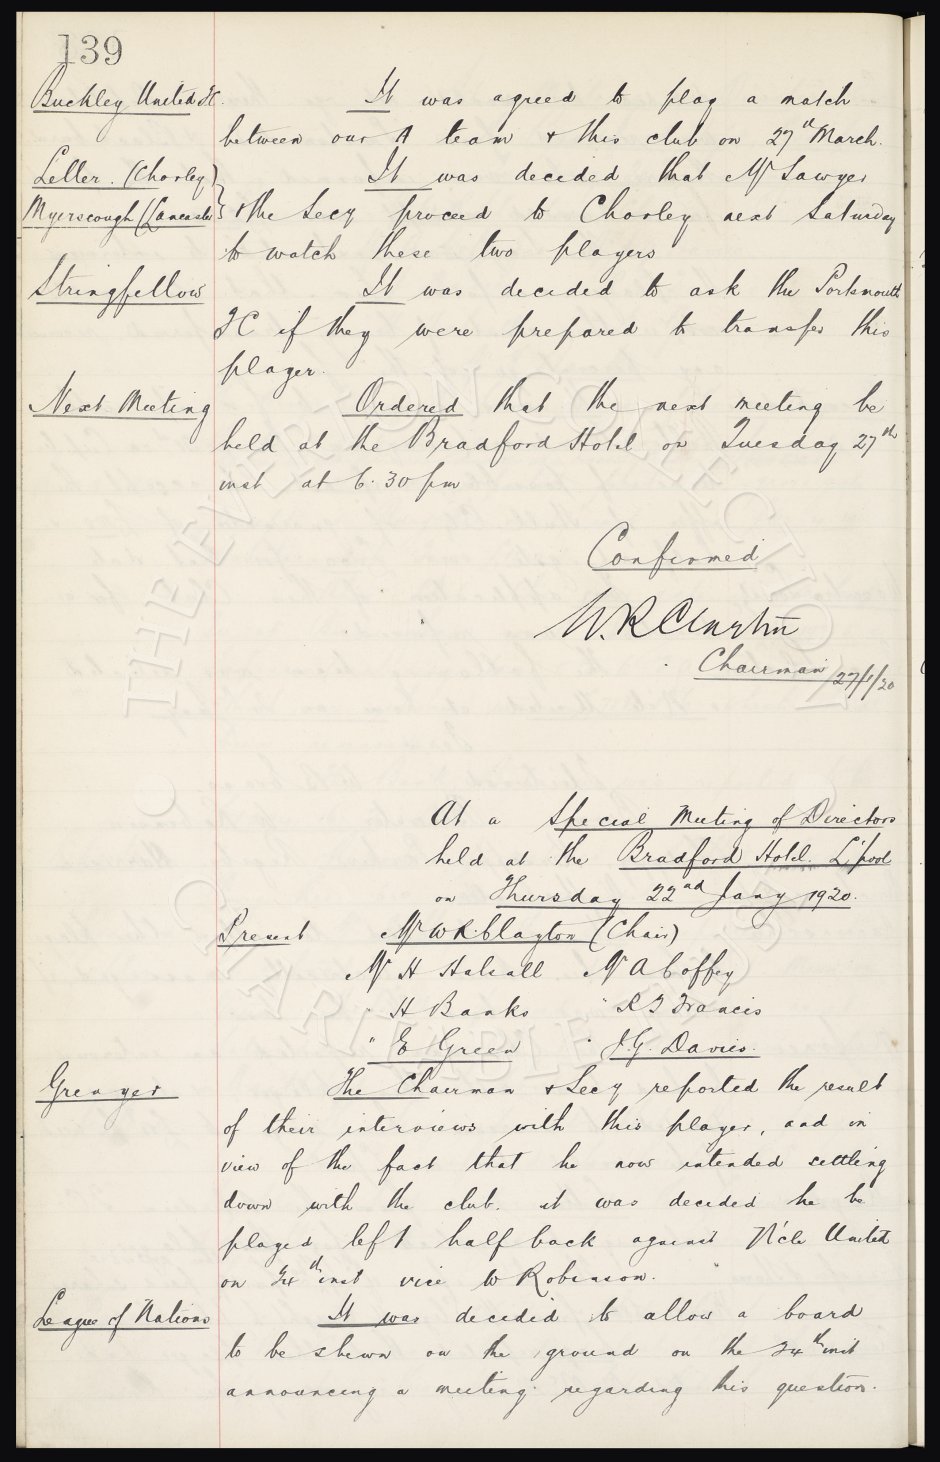 139
Buckley United FC. It was agreed to play a match
between our A team & this club on 27th March.
Letter. (Chorley) It was decided that Mr Sawyer
Myerscough (Lancaster) & the Secy proceed to Chorley next Saturday
to watch these two players
Stringfellow It was decided to ask the Portsmouth
FC if they were prepared to transfer this
player.
Next Meeting Ordered that the next meeting be
held at the Bradford Hotel on Tuesday 27th
inst at 6.30 pm
Confirmed
W.R. Clayton
Chairman 27/1/20
At a Special Meeting of Directors
held at the Bradford Hotel. L'pool
on Thursday 22nd Jany 1920.
Present Mr W R Clayton (Chair)
Mr H Halsall Mr A Coffey
" H Banks " R T Francis
" E Green " J.G. Davies.
Grenyer The Chairman & Secy reported the result
of their interviews with this player, and in
view of the fact that he now intended settling
down with the club. it was decided he be
played left half back against N'cle United
on 24th inst vice W Robinson.
League of Nations It was decided to allow a board
to be shewn on the ground on the 24th inst
announcing a meeting regarding this question.